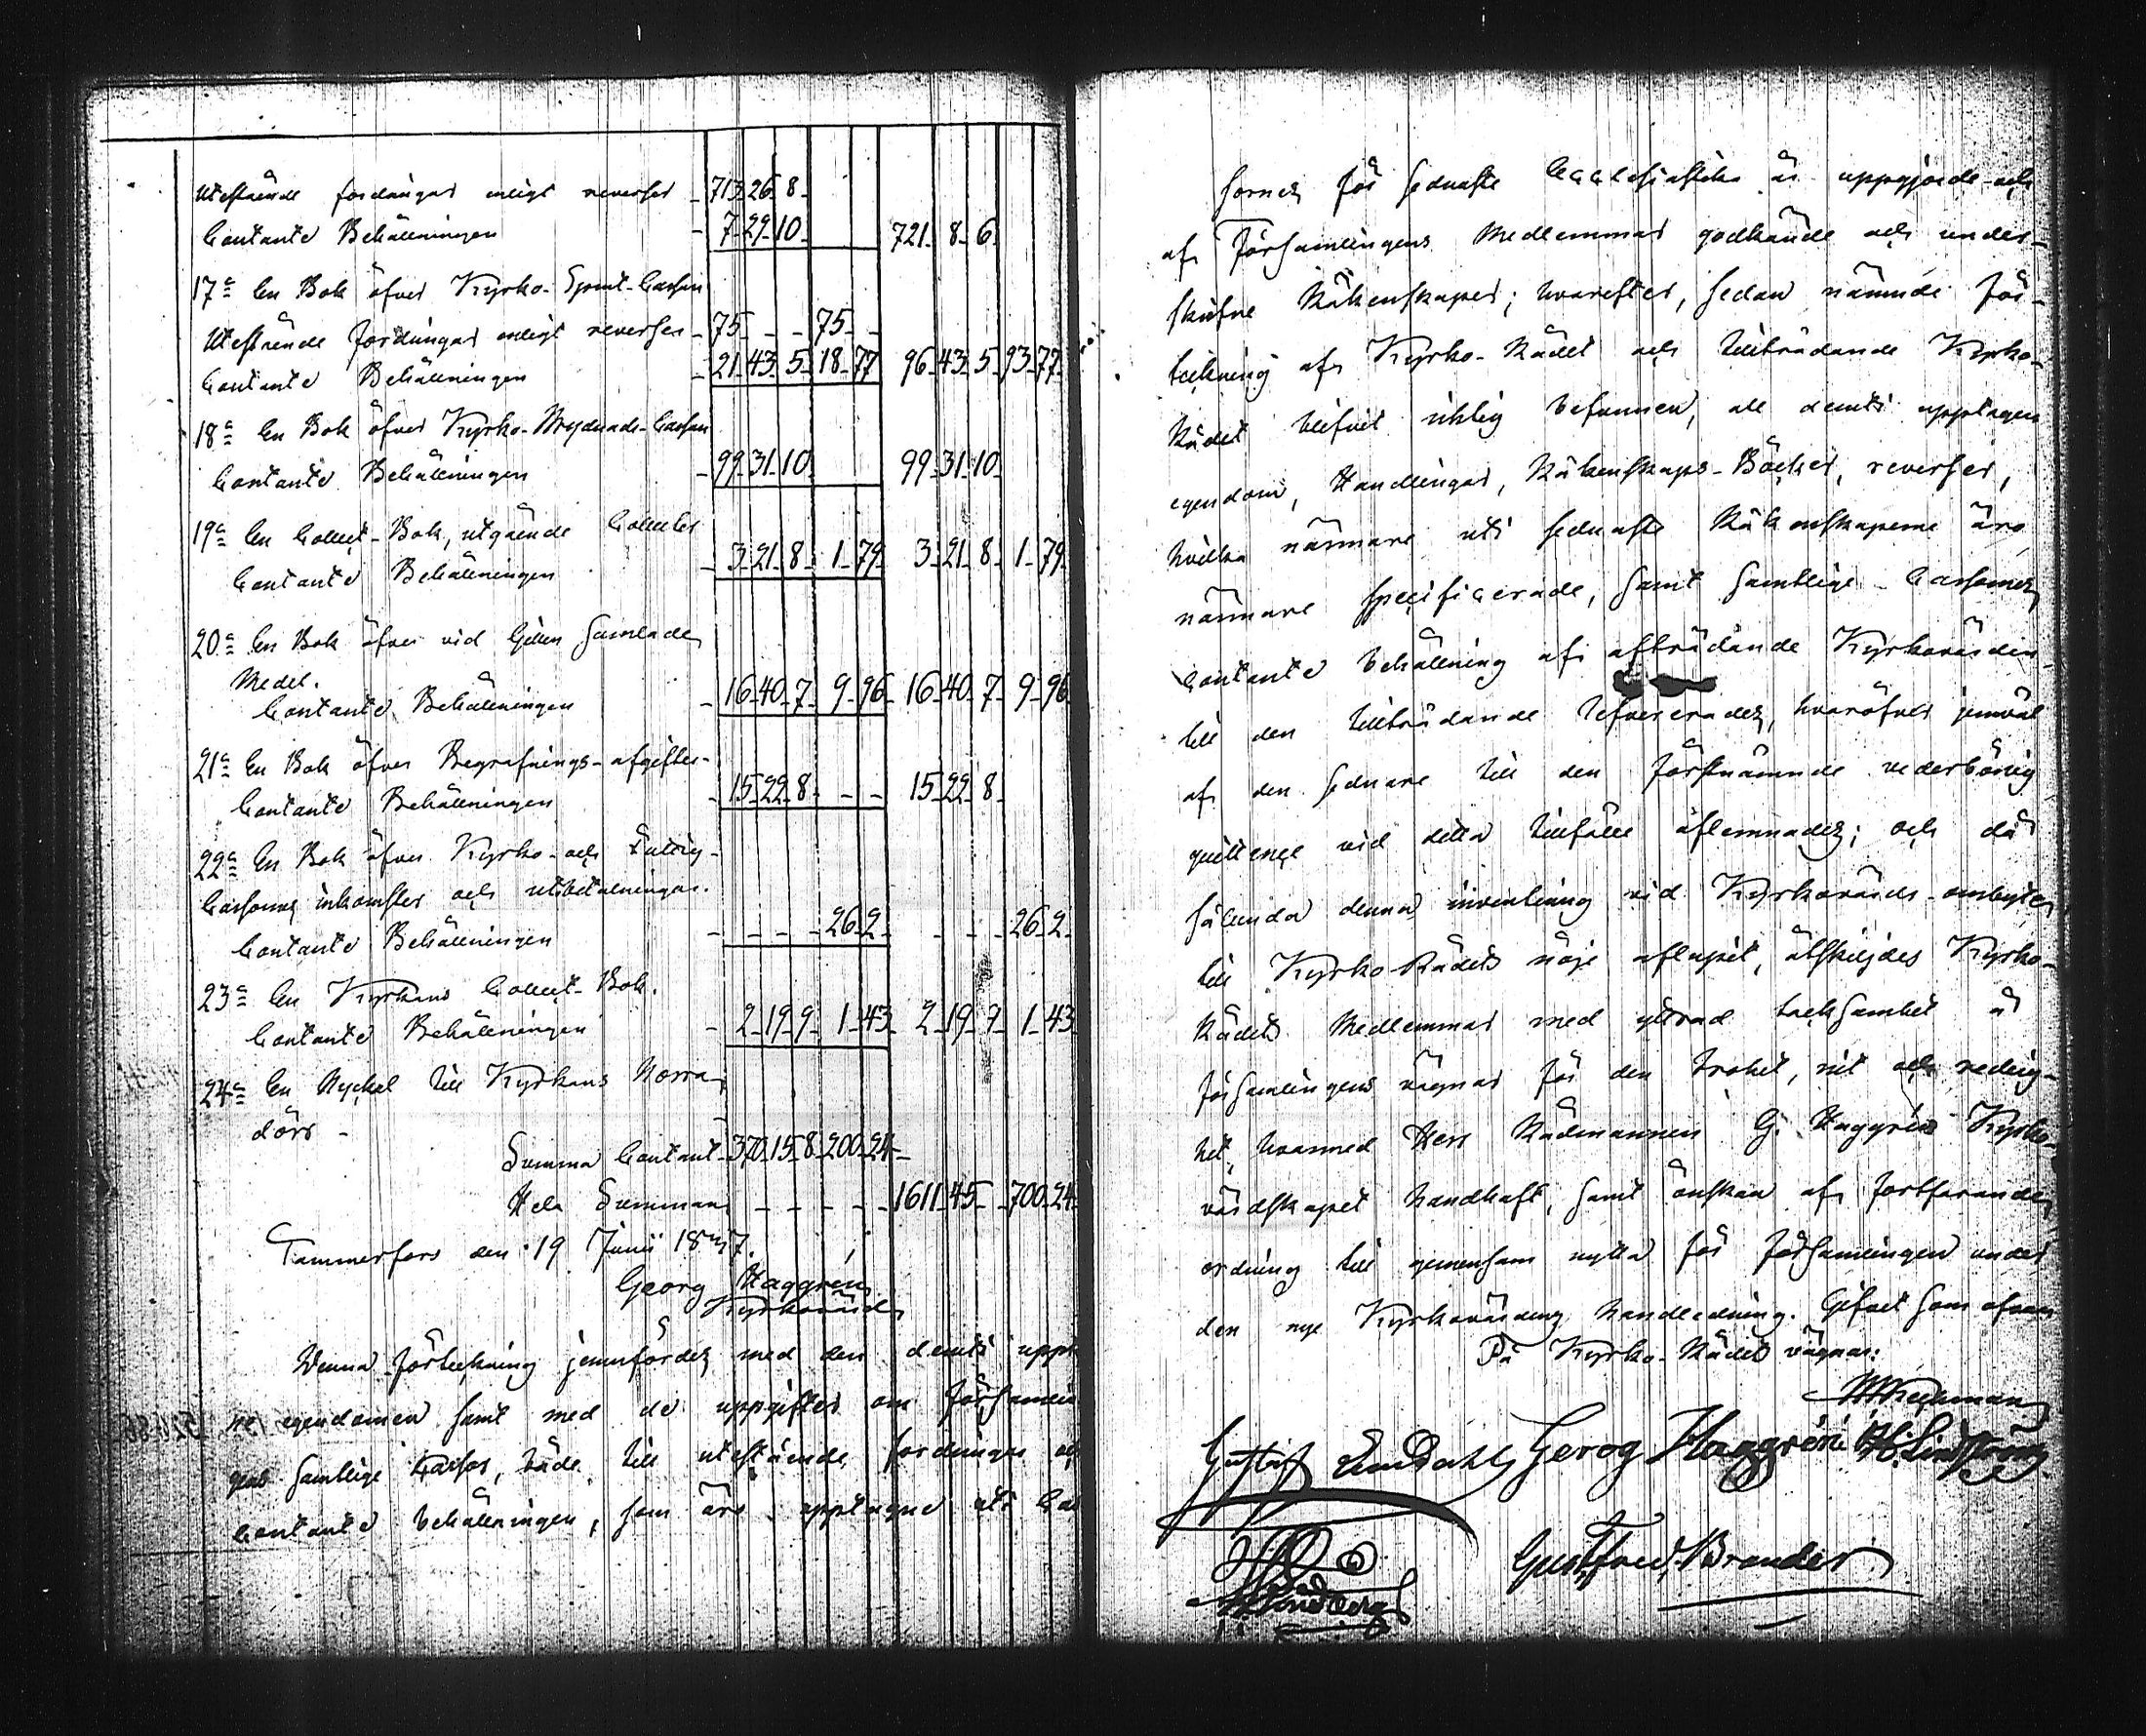 Utestående fordringar enligt reverser - 713. 26. 8.
Contanta Behållningen - 7. 29. 10. 721. 8. 6.
17= En Bok öfver Kyrko-Spent-Cassan
Utestående fordringar enligt reverser - 75 - - 75 - -
Contanta Behållningen - 21. 43. 5. 18. 77 96. 43. 5. 93. 77.
18= En Bok öfver Kyrko-Byggnads-Cassan
Contanta Behållningen - 99. 31. 10. 99. 31. 10.
19= En Collect-Bok, utgående Collecter
Contanta Behållningen - 3. 21. 8. 1. 79. 3. 21. 8. 1. 79.
20= En Bok öfver vid samlade
Medel.
Contanta Behållningen - 16. 40. 7. 9. 96. 16. 40. 7. 9. 96.
21= En Bok öfver Begrafnings-afgifter.
Contanta Behållningen - 15. 22. 8. - - 15. 22. 8.
22= En Bok öfver Kyrko- och Fattig-
Cassornes inkomster och utbetalningar.
Contanta Behållningen - - - - 26. 2. - - - 26. 2.
23= En Kyrkans Collect-Bok.
Contanta Behållningen - 2. 19. 9. 1. 43. 2. 19. 9. 1. 43.
24= En Nyckel till Kyrkans Norra
dörr -
Summa Contant - 370. 15. 8. 200. 24 -
Hela Summan - - - - - 1611. 45. - 700. 24.
Tammerfors den 19 Junii 1847.
Georg Haggrén
Kyrkovärd
Denna förteckning jemnfördes med den deruti uppt
ne egendomen samt med de uppgifter om Försam
gens samtlige Cassor, både till utestående fordringar och
contanta behållningen, som äro upptagne uti Cas
sornes för sednaste Ecclesiastika år uppgjorde och
af Församlingens Medlemmar godkände och under-
skrifne Räkenskaper; hvarefter, sedan nämnde För-
teckning af Kyrko-Rådet och tillträdande Kyrko-
Rådet blifvit riktig befunnen, all deruti upptagen
egendom, Handlingar, Räkenskaps-Böcker, reverser,
hvilka närmare uti sednaste Räkenskaperne äro
närmare specificerade, samt samtlige Cassornes
contanta behållning af afträdande Kyrkovärden
till den tillträdande lefvererades, hvaröfver jemväl
af den sednare till den förstnämnde vederbörlig
quittence vid detta tillfälle aflemnades; och då
sålunda denna inventering vid Kyrkovärds-ombyte
till Kyrko-Rådets nöje aflupit, åtskiljdes Kyrko-
Rådets Medlemmar med yttrad tacksamhet å
Församlingens vägnar för den trohet, nit och redlig-
het, hvarmed Herr Rådmannen G. Haggrén Kyrko-
värdskapet handhaft, samt önskan af fortfarande
ordning till gemensam nytta för Församlingen under
den nye Kyrkovärdens handledning. Gifvet som ofvan
På Kyrko-Rådets vägnar:
Gustaf Georg Haggrén
Gust. Fred. Brander